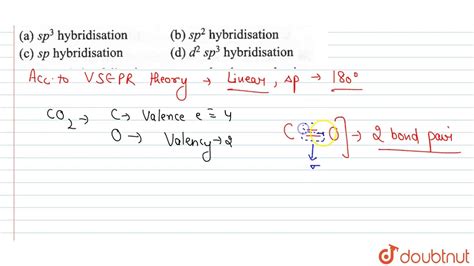 (a) sp³ hybridisation (b) sp² hybridisation
(c) sp hybridisation (d) d² sp³ hybridisation
Acc. to VSEPR theory → Linear, Δp → 180°
CO₂ → C → Valence e⁻ = 4
O → Valency → 2
C = O ] → 2 bond pair
σ
doubtnut